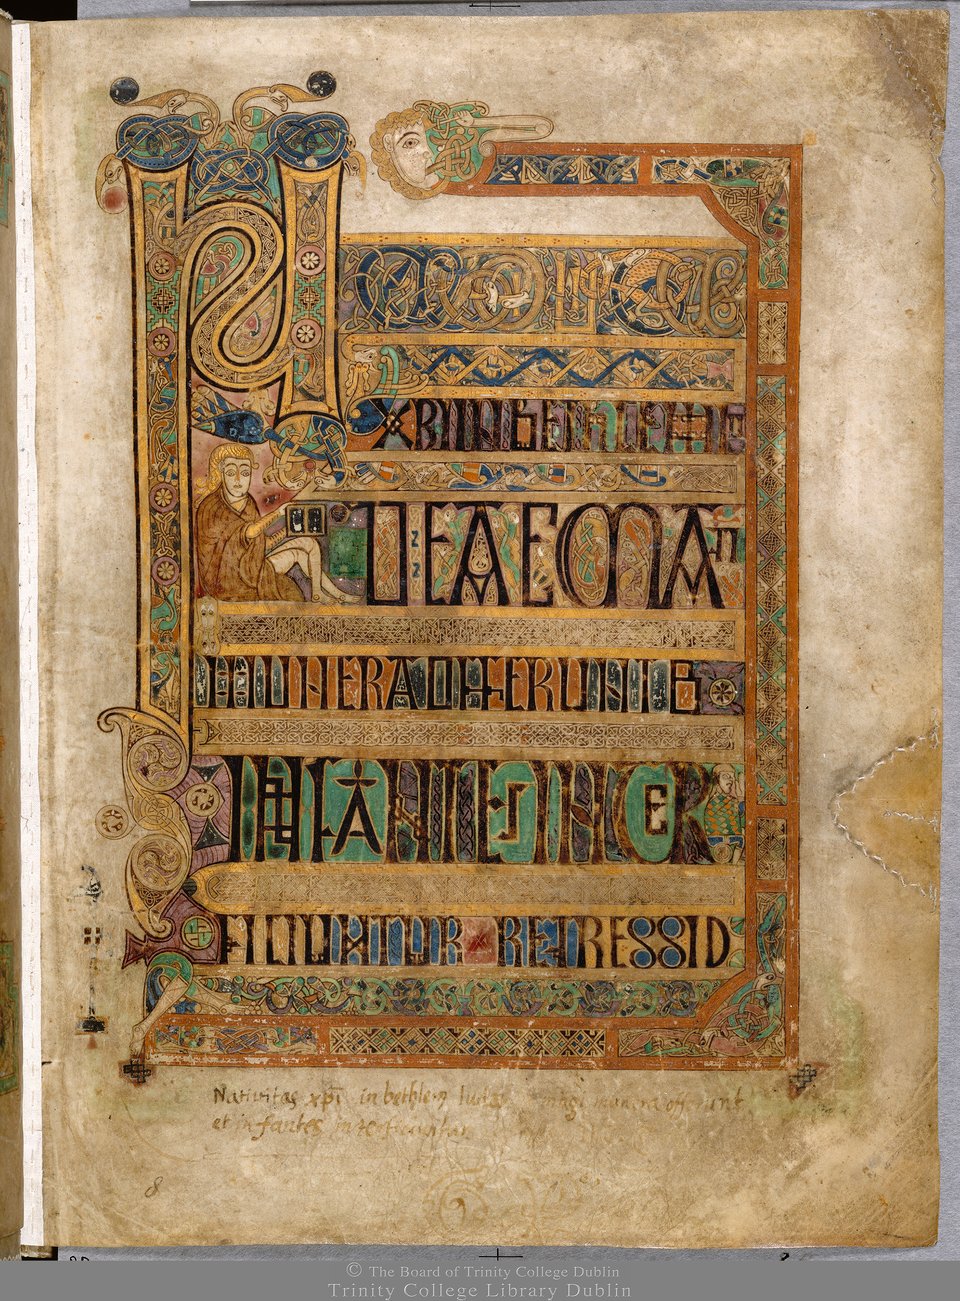 NATIUITAS
XPI IN BETHLEM
IUDEAE MAGI
MUNERA OFFERUNT ET
INFANTES INTER
FICIUNTUR REGRESSIO
Nativitas xp̄i in bethlem Iudeæ magi munera offerunt
et infantes interficiuntur
8
© The Board of Trinity College Dublin
Trinity College Library Dublin